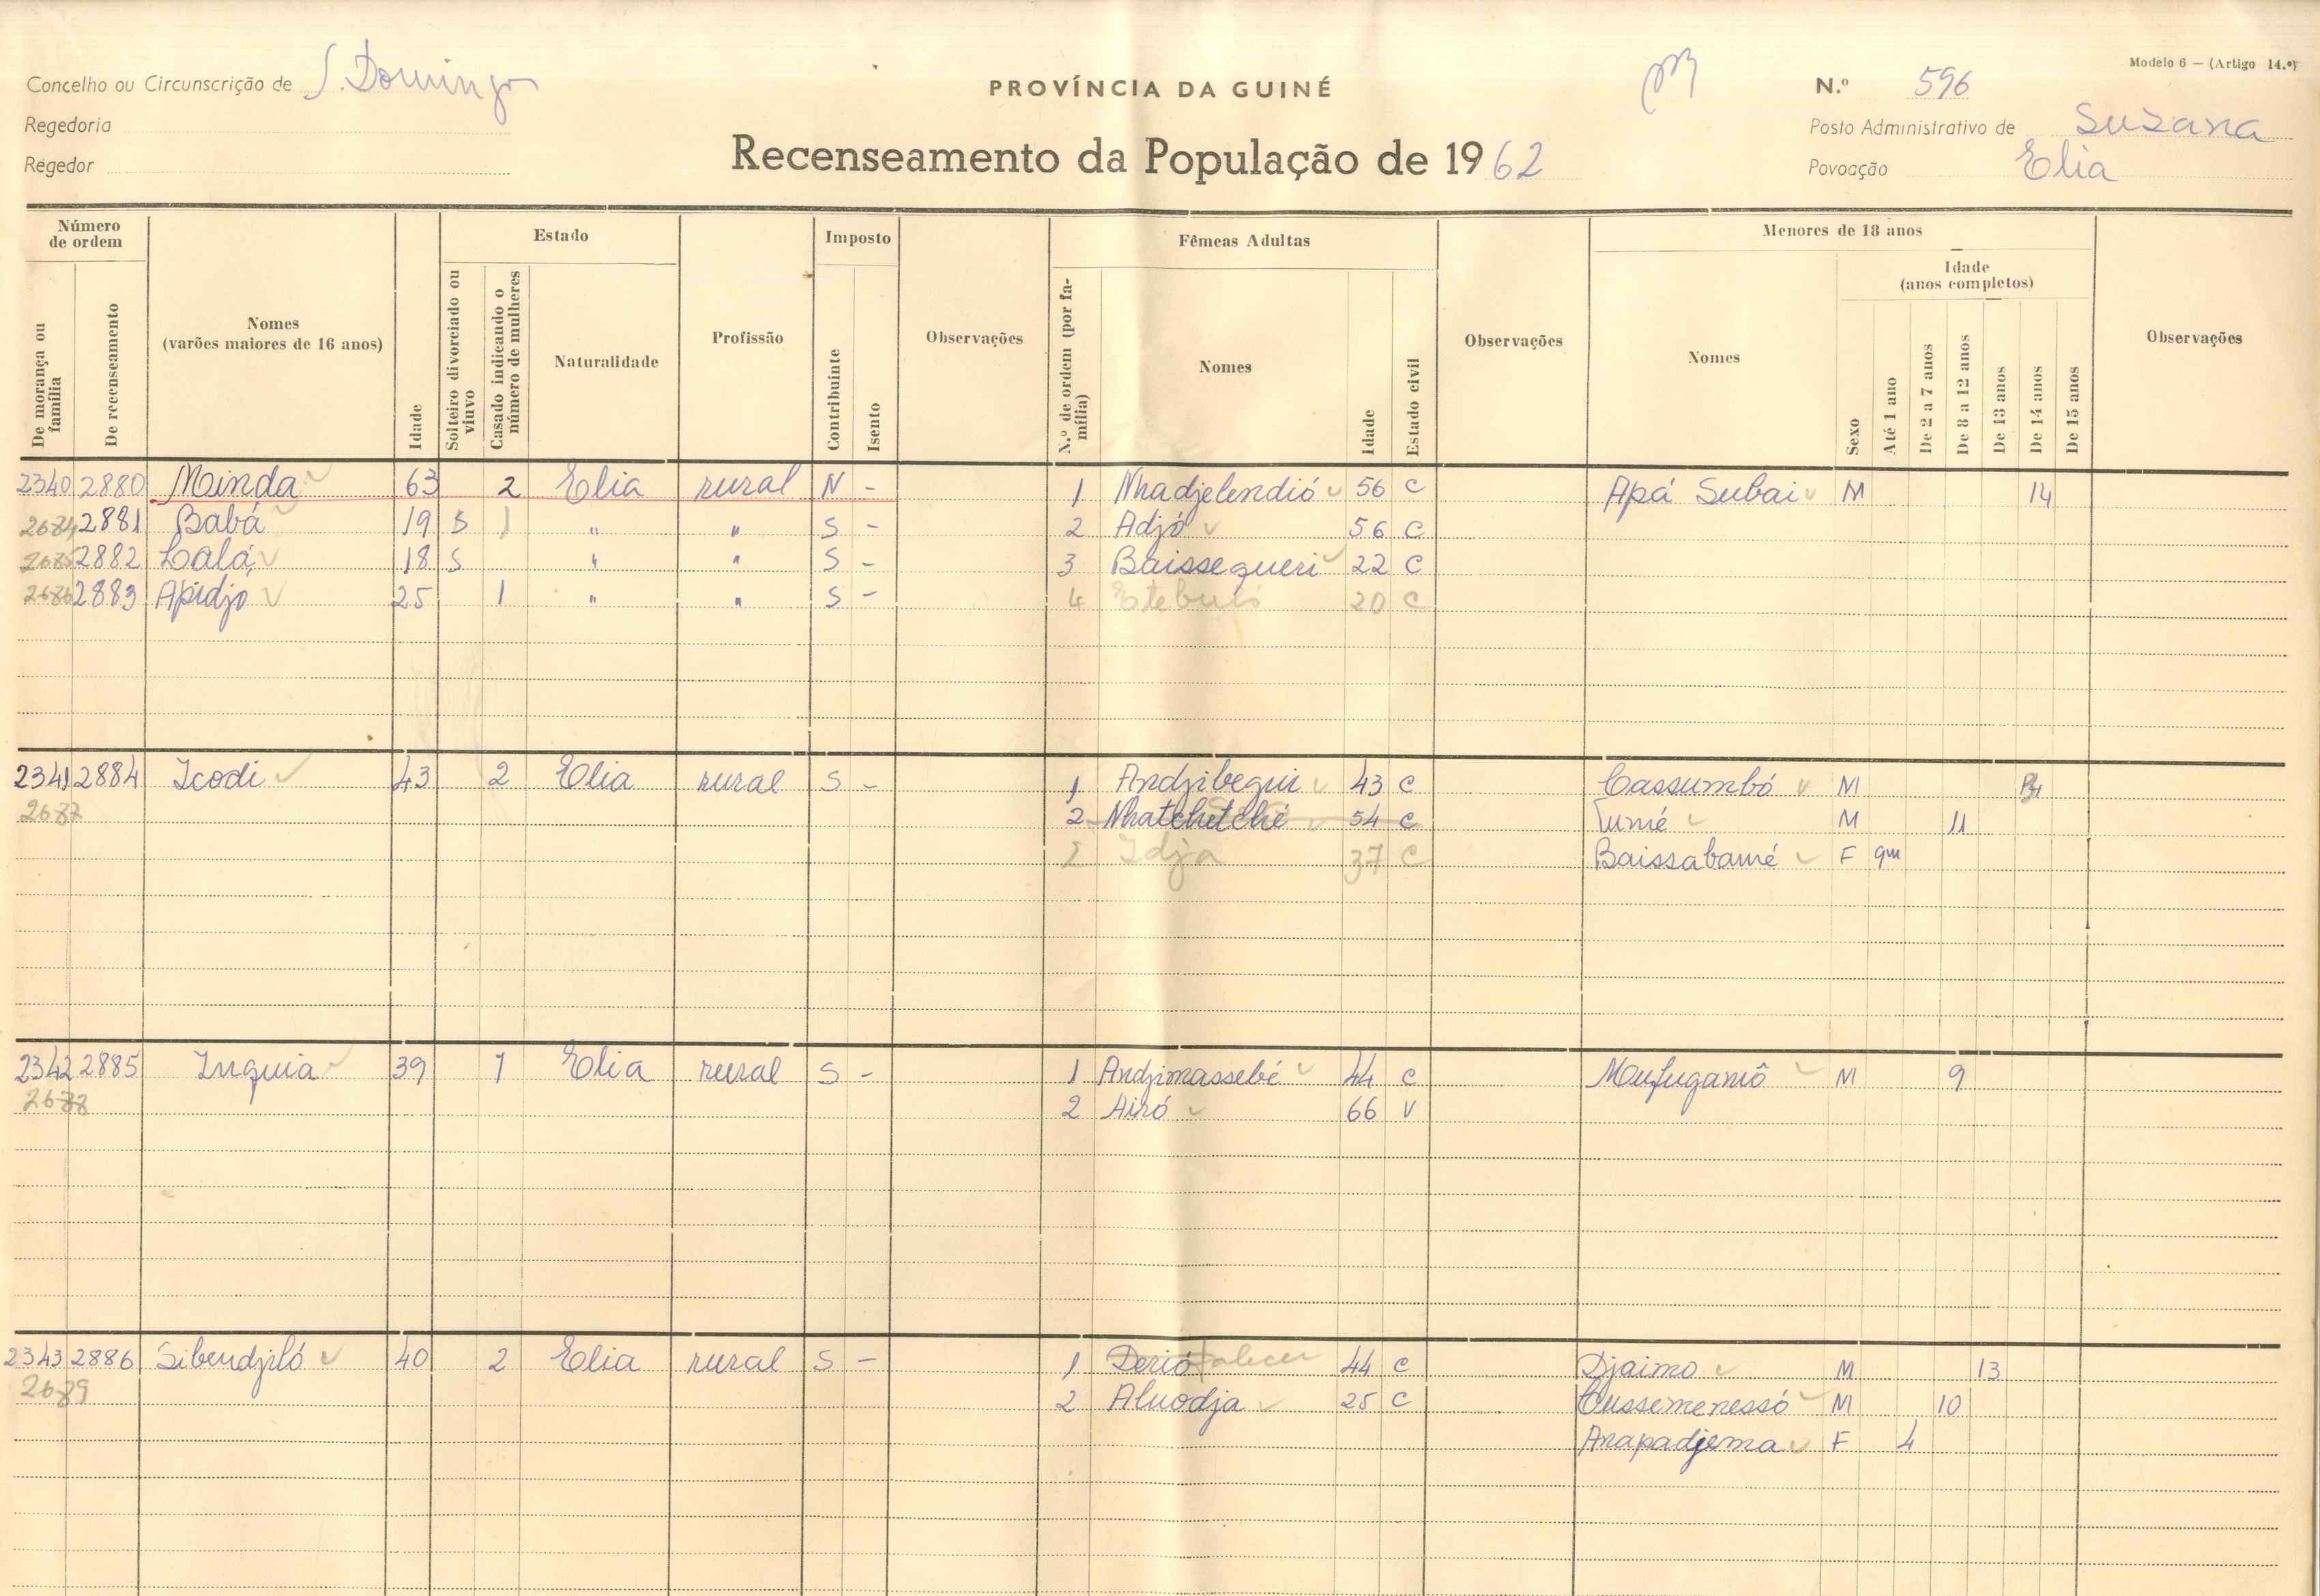 Modelo 6 — (Artigo 14.º)
Concelho ou Circunscrição de S. Domingos
PROVÍNCIA DA GUINÉ
N.º 596
Regedoria
Posto Administrativo de Suzana
Regedor
Recenseamento da População de 1962
Povoação Elia
Número de ordem
De morança ou família
De recenseamento
Nomes (varões maiores de 16 anos)
Idade
Estado
Solteiro divorciado ou viuvo
Casado indicando o número de mulheres
Naturalidade
Profissão
Imposto
Contribuinte
Isento
Observações
Fêmeas Adultas
N.º de ordem (por família)
Nomes
Idade
Estado civil
Observações
Menores de 18 anos
Nomes
Sexo
Idade (anos completos)
Até 1 ano
De 2 a 7 anos
De 8 a 12 anos
De 13 anos
De 14 anos
De 15 anos
Observações
2340 2880 Minda 63 2 Elia rural N - 1 Nhadjelendió 56 C Apá Subai M 14
2684 2881 Babá 19 S 1 " " S - 2 Adjó 56 C
2685 2882 Lalá 18 S " " S - 3 Baissegueri 22 C
2686 2883 Apidjo 25 1 " " S - 4 20 C
2341 2884 Icodi 43 2 Elia rural S - 1 Andjibegui 43 C Cassumbó M
2687 2 Nhatchetché 54 C Tumé M 11
2 Idja 37 C Baissabamé F 9m
2342 2885 Inquia 39 1 Elia rural S - 1 Andjimassebé 44 C Moufugamô M 9
2688 2 Airó 66 V
2343 2886 Sibendjiló 40 2 Elia rural S - 1 Derió falecer 44 C Djaimo M 13
2689 2 Aluodja 25 C Cussemenessó M 10
Anapadjema F 4